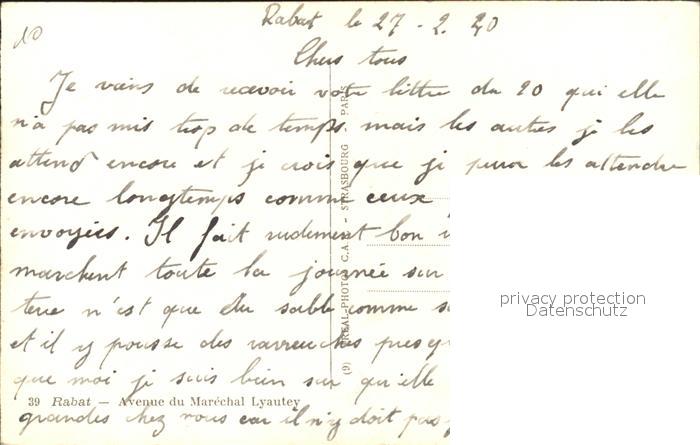 Rabat le 27-2.20
Chers tous
Je viens de recevoir votre lettre du 20 qui elle
n'a pas mis trop de temps. mais les autres je les
attend encore et je crois que je peux les attendre
encore longtemps comme ceux
envoyées. Il fait rudement bon
marchent toute la journée sur
terre n'est que du sable comme
et il y pousse des
que moi je suis bien sur qu'elle
grandes chez vous car il n'y doit pas
39 Rabat — Avenue du Maréchal Lyautey
(9) REAL-PHOTO C.A.P. - STRASBOURG - PARIS
privacy protection
Datenschutz